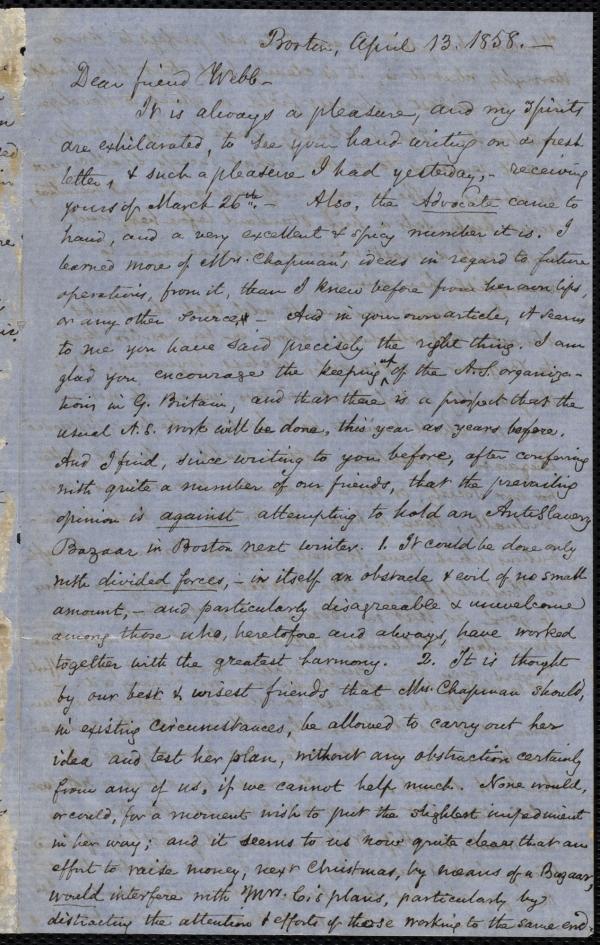 Boston, April 13. 1858. —
Dear friend Webb —
It is always a pleasure, and my spirits
are exhilarated, to see your hand writing on a fresh
letter, & such a pleasure I had yesterday, - receiving
yours of March 26th. — Also, the Advocate came to
hand, and a very excellent & spicy number it is. I
learned more of Mrs. Chapman's ideas in regard to future
operations, from it, than I knew before from her own lips,
or any other source. — And in your own article, it seems
to me you have said precisely the right thing. I am
glad you encourage the keeping up of the A.S. organiza-
tions in G. Britain, and that there is a prospect that the
usual A.S. work will be done, this year as years before.
And I find, since writing to you before, after conferring
with quite a number of our friends, that the prevailing
opinion is against attempting to hold an AntiSlavery
Bazaar in Boston next winter. 1. It could be done only
with divided forces, - in itself an obstacle & evil of no small
amount, - and particularly disagreeable & unwelcome
among those who, heretofore and always, have worked
together with the greatest harmony. 2. It is thought
by our best & wisest friends that Mrs. Chapman should,
in existing circumstances, be allowed to carry out her
idea and test her plan, without any obstruction certainly
from any of us, if we cannot help much. None would,
or could, for a moment wish to put the slightest impediment
in her way; and it seems to us now quite clear that an
effort to raise money, next Christmas, by means of a Bazaar,
would interfere with Mrs. C.'s plans, particularly by
distracting the attention & efforts of those working to the same end.